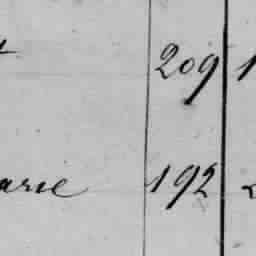 209 1
arie 192